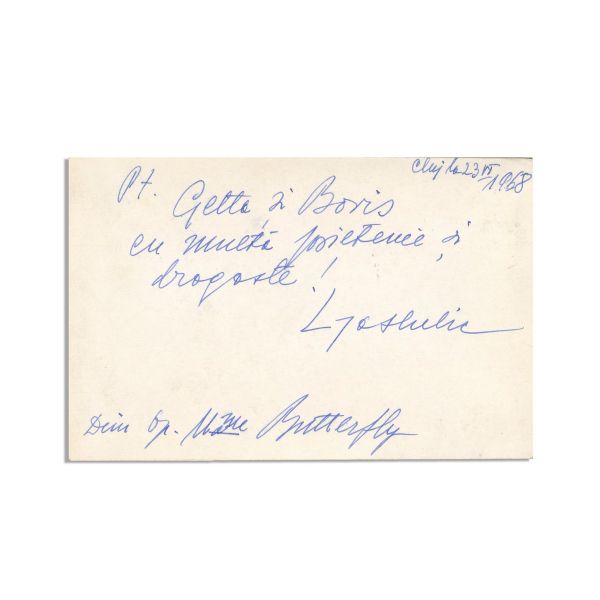 Cluj la 23 VI
1968
Pt. Getta și Boris
cu multă prietenie și
drogoste!
Din op. Mme Butterfly